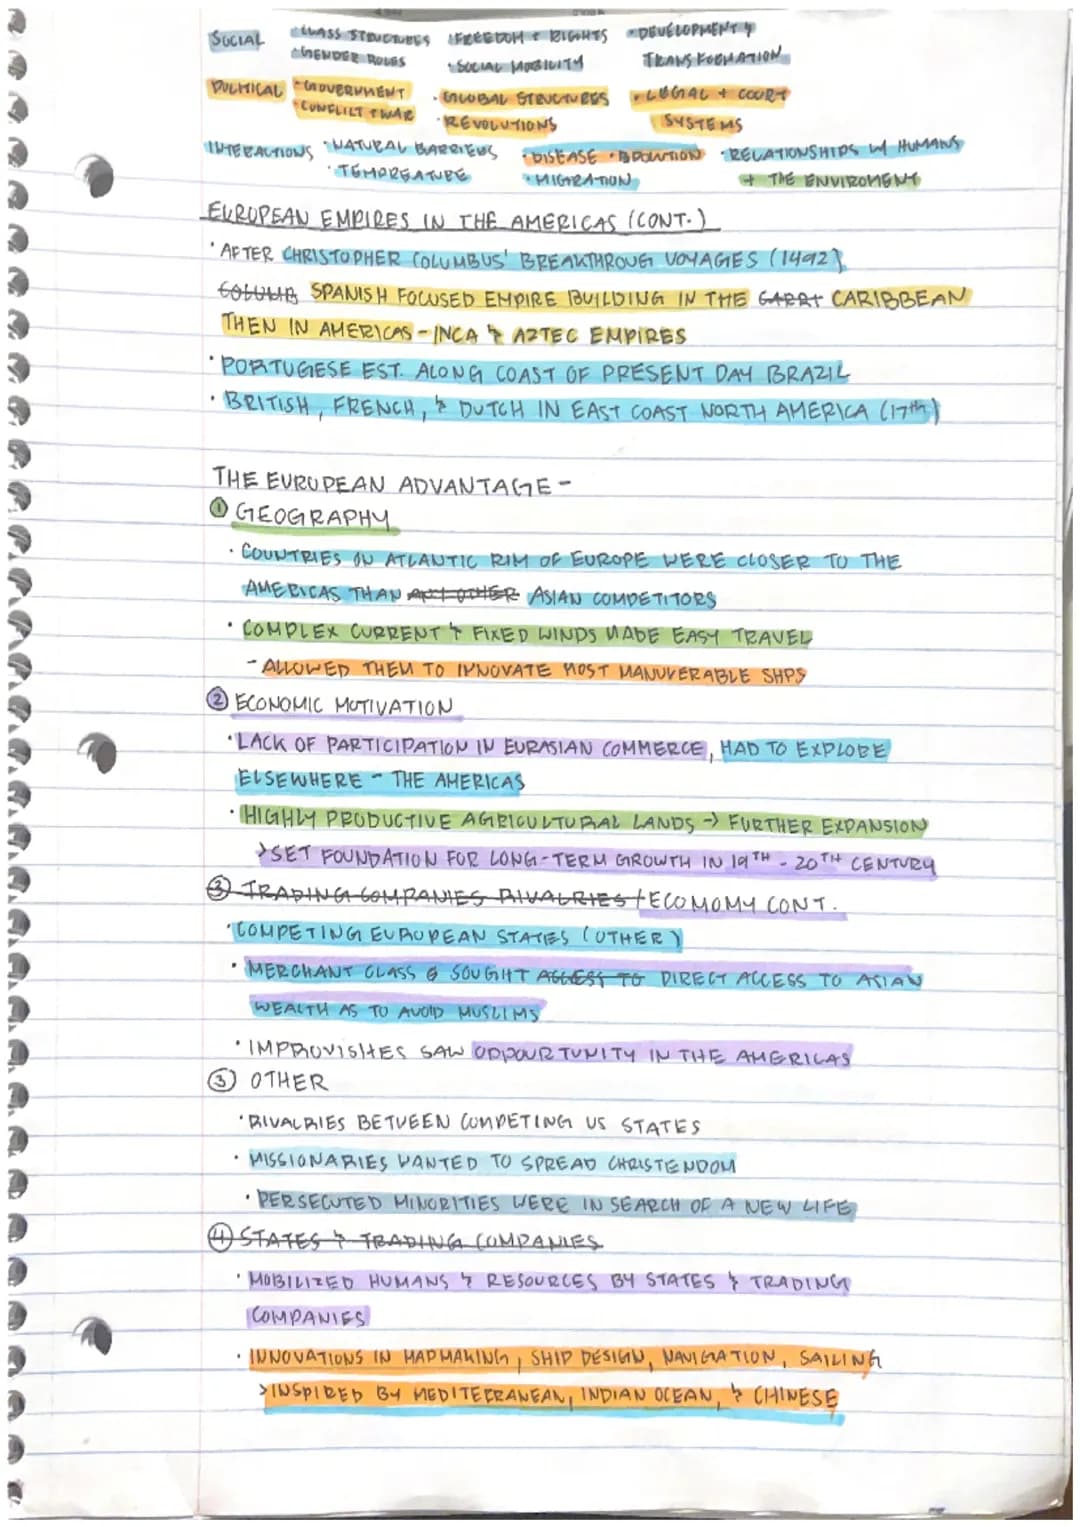 SOCIAL • CLASS STRUCTURES • FREEDOM & RIGHTS • DEVELOPMENT &
• GENDER ROLES • SOCIAL MOBILITY TRANSFORMATION
POLITICAL • GOVERNMENT • GLOBAL STRUCTURES • LEGAL + COURT
• CONFLICT & WAR • REVOLUTIONS SYSTEMS
INTERACTIONS • NATURAL BARRIERS • DISEASE • POLLUTION • RELATIONSHIPS W/ HUMANS
• TEMPREATURE • MIGRATION + THE ENVIROMENT
EUROPEAN EMPIRES IN THE AMERICAS (CONT.)
• AFTER CHRISTOPHER COLUMBUS' BREAKTHROUGH VOYAGES (1492)
COLUMB SPANISH FOCUSED EMPIRE BUILDING IN THE CARRI CARIBBEAN
THEN IN AMERICAS - INCA & AZTEC EMPIRES
• PORTUGESE EST. ALONG COAST OF PRESENT DAY BRAZIL
• BRITISH, FRENCH, & DUTCH IN EAST COAST NORTH AMERICA (17th)
THE EUROPEAN ADVANTAGE -
① GEOGRAPHY
• COUNTRIES ON ATLANTIC RIM OF EUROPE WERE CLOSER TO THE
AMERICAS THAN ANY OTHER ASIAN COMPETITORS
• COMPLEX CURRENT & FIXED WINDS MADE EASY TRAVEL
- ALLOWED THEM TO INNOVATE MOST MANUVERABLE SHPS
② ECONOMIC MOTIVATION
• LACK OF PARTICIPATION IN EURASIAN COMMERCE, HAD TO EXPLORE
ELSEWHERE - THE AMERICAS
• HIGHLY PRODUCTIVE AGRICULTURAL LANDS → FURTHER EXPANSION
> SET FOUNDATION FOR LONG-TERM GROWTH IN 19TH - 20TH CENTURY
③ TRADING COMPANIES RIVALRIES / ECOMOMY CONT.
• COMPETING EUROPEAN STATES (OTHER)
• MERCHANT CLASS SOUGHT ACCESS TO DIRECT ACCESS TO ASIAN
WEALTH AS TO AVOID MUSLIMS
• IMPROVISHES SAW OPPOURTUNITY IN THE AMERICAS
③ OTHER
• RIVALRIES BETWEEN COMPETING US STATES
• MISSIONARIES WANTED TO SPREAD CHRISTENDOM
• PERSECUTED MINORITIES WERE IN SEARCH OF A NEW LIFE
④ STATES & TRADING COMPANIES
• MOBILIZED HUMANS & RESOURCES BY STATES & TRADING
COMPANIES
• INNOVATIONS IN MAPMAKING, SHIP DESIGN, NAVIGATION, SAILING
> INSPIRED BY MEDITERRANEAN, INDIAN OCEAN, & CHINESE